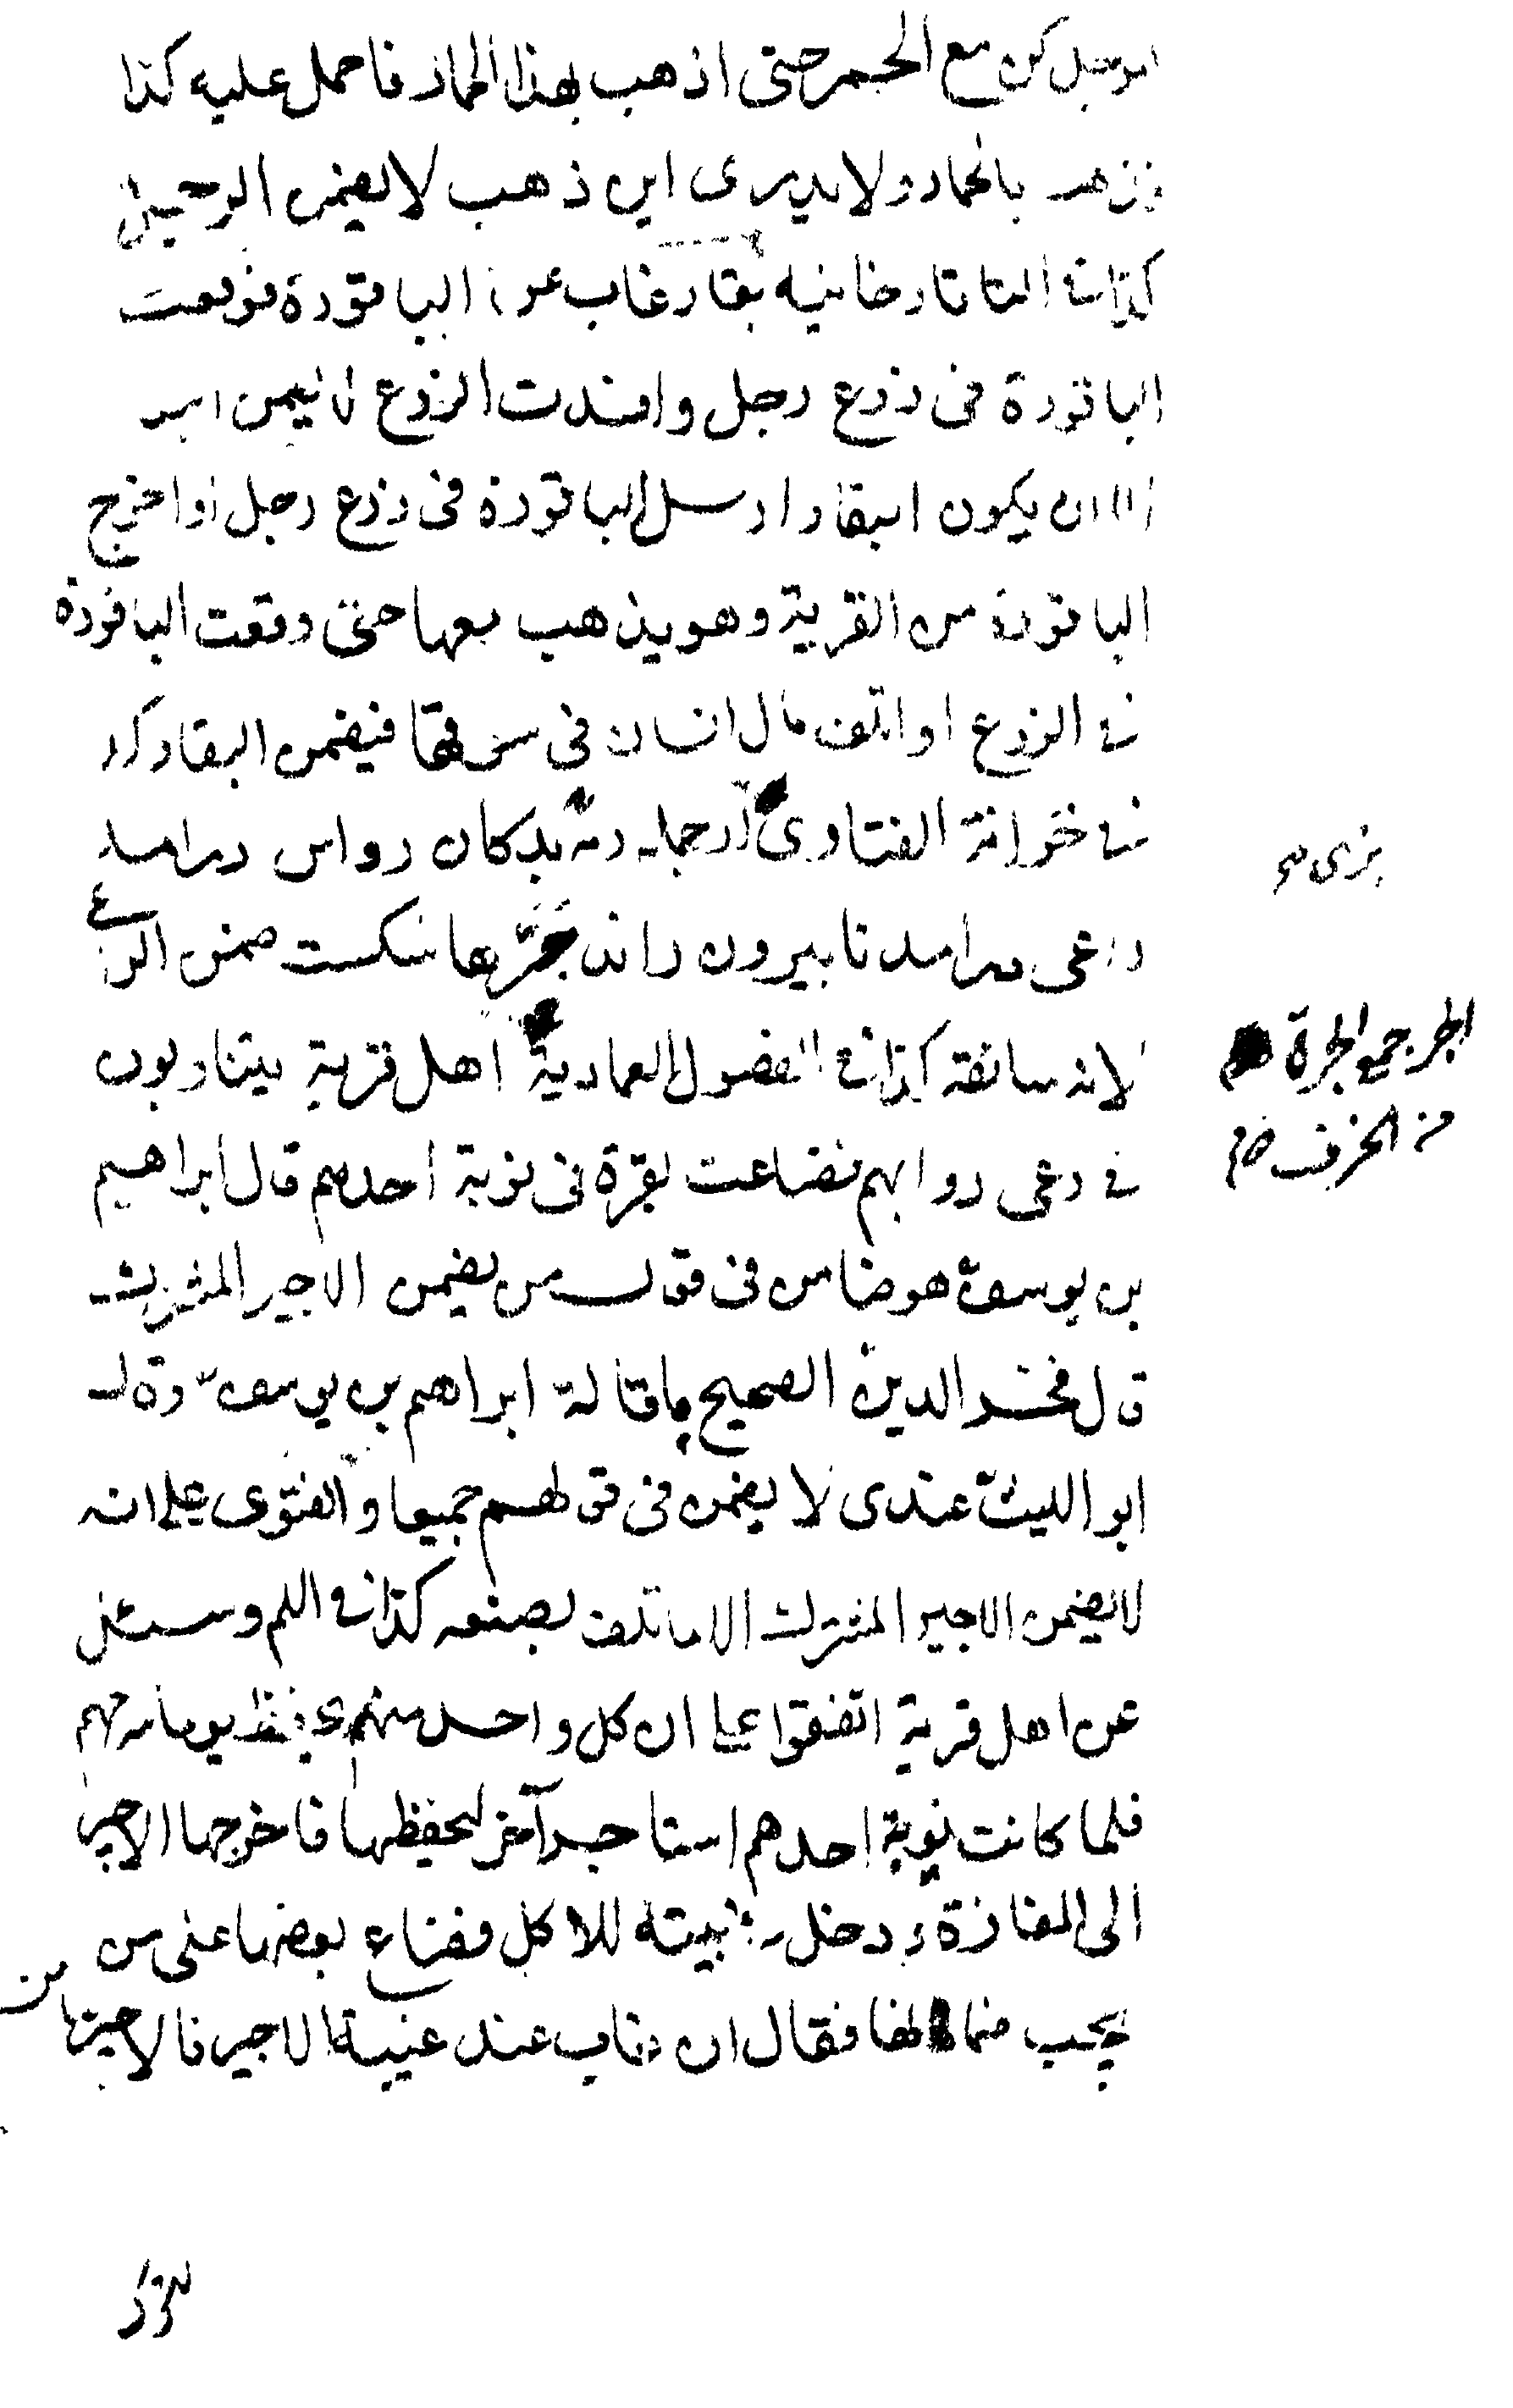 كن مع الحمر حتى اذهب بهذا الحمار فاحمل عليه كذا
بالحمار ولا يدرى اين ذهب لا يضمن الرجل
كذا فى التاتارخانيه بقار غاب عن الباقورة فوقعت
الباقورة فى زرع رجل وافسدت الزرع لا يضمن
الا ان يكون البقار ارسل الباقورة فى زرع رجل او اخرج
الباقورة من القرية وهو يذهب معها حتى وقعت الباقورة
فى الزرع او اتلف مال انسان فى سوقها فيضمن البقار كذا
فى خزانة الفتاوى بدكان رواس درامد
راعى درامد تا بيرون راند جرها شكست ضمن الراعى
لانه سائقه كذا فى الفصول العمادية اهل قرية يتناوبون
فى رعى دوابهم فضاعت بقرة فى نوبة احدهم قال ابراهيم
بن يوسف هو ضامن فى قول من يضمن الاجير المشترك
قال فخر الدين الصحيح ما قاله ابراهيم بن يوسف وقال
ابو الليث عندى لا يضمن فى قولهم جميعا والفتوى على انه
لا يضمن الاجير المشترك الا ما تلف بصنعه كذا فى وسئل
عن اهل قرية اتفقوا على ان كل واحد منهم
فلما كانت نوبة احدهم استاجر آخر لحفظها فاخرجها الاجير
الى المفازة ودخل بيته للاكل فضاع بعضها على من
يجب ضمانها فقال ان غاب عند غيبة الاجير فالاجير ضامن
الجر جمع الجرة
من الخزف